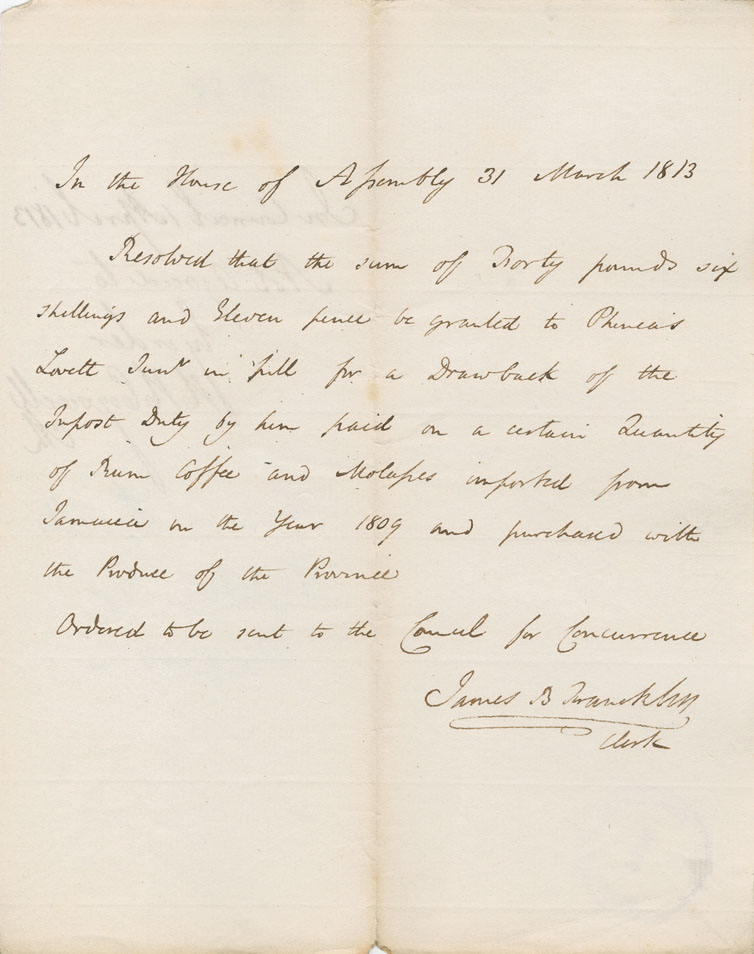 In the House of Assembly 31 March 1813
Resolved that the sum of Forty pounds six
shillings and Eleven pence be granted to Phineas
Lovett Junr in full for a Drawback of the
Impost Duty by him paid on a certain Quantity
of Rum Coffee and Molasses imported from
Jamaica in the Year 1809 and purchased with
the Produce of the Province
Ordered to be sent to the Council for Concurrence
James B Francklin
Clerk